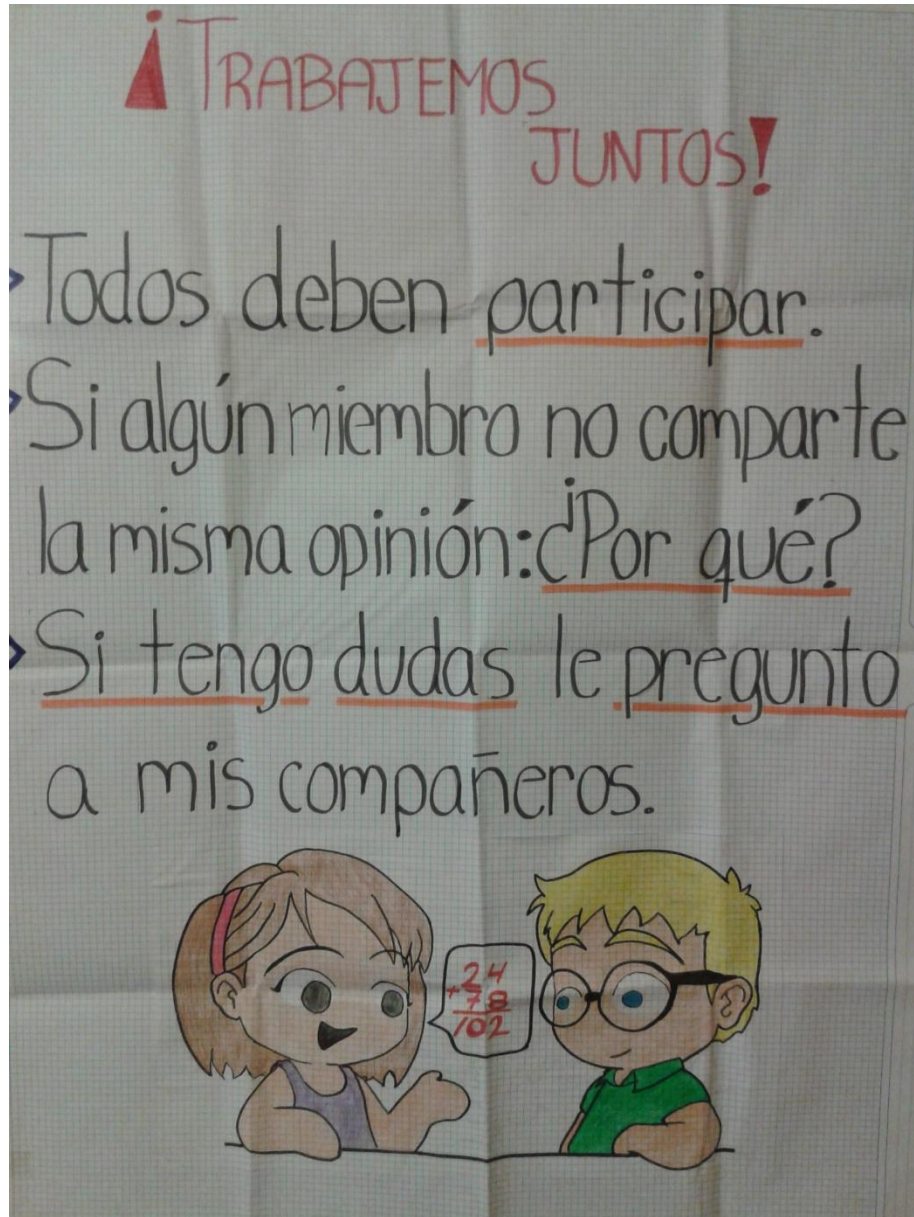 ¡TRABAJEMOS
JUNTOS!
Todos deben participar.
Si algún miembro no comparte
la misma opinión:¿Por qué?
Si tengo dudas le pregunto
a mis compañeros.
24
+78
102